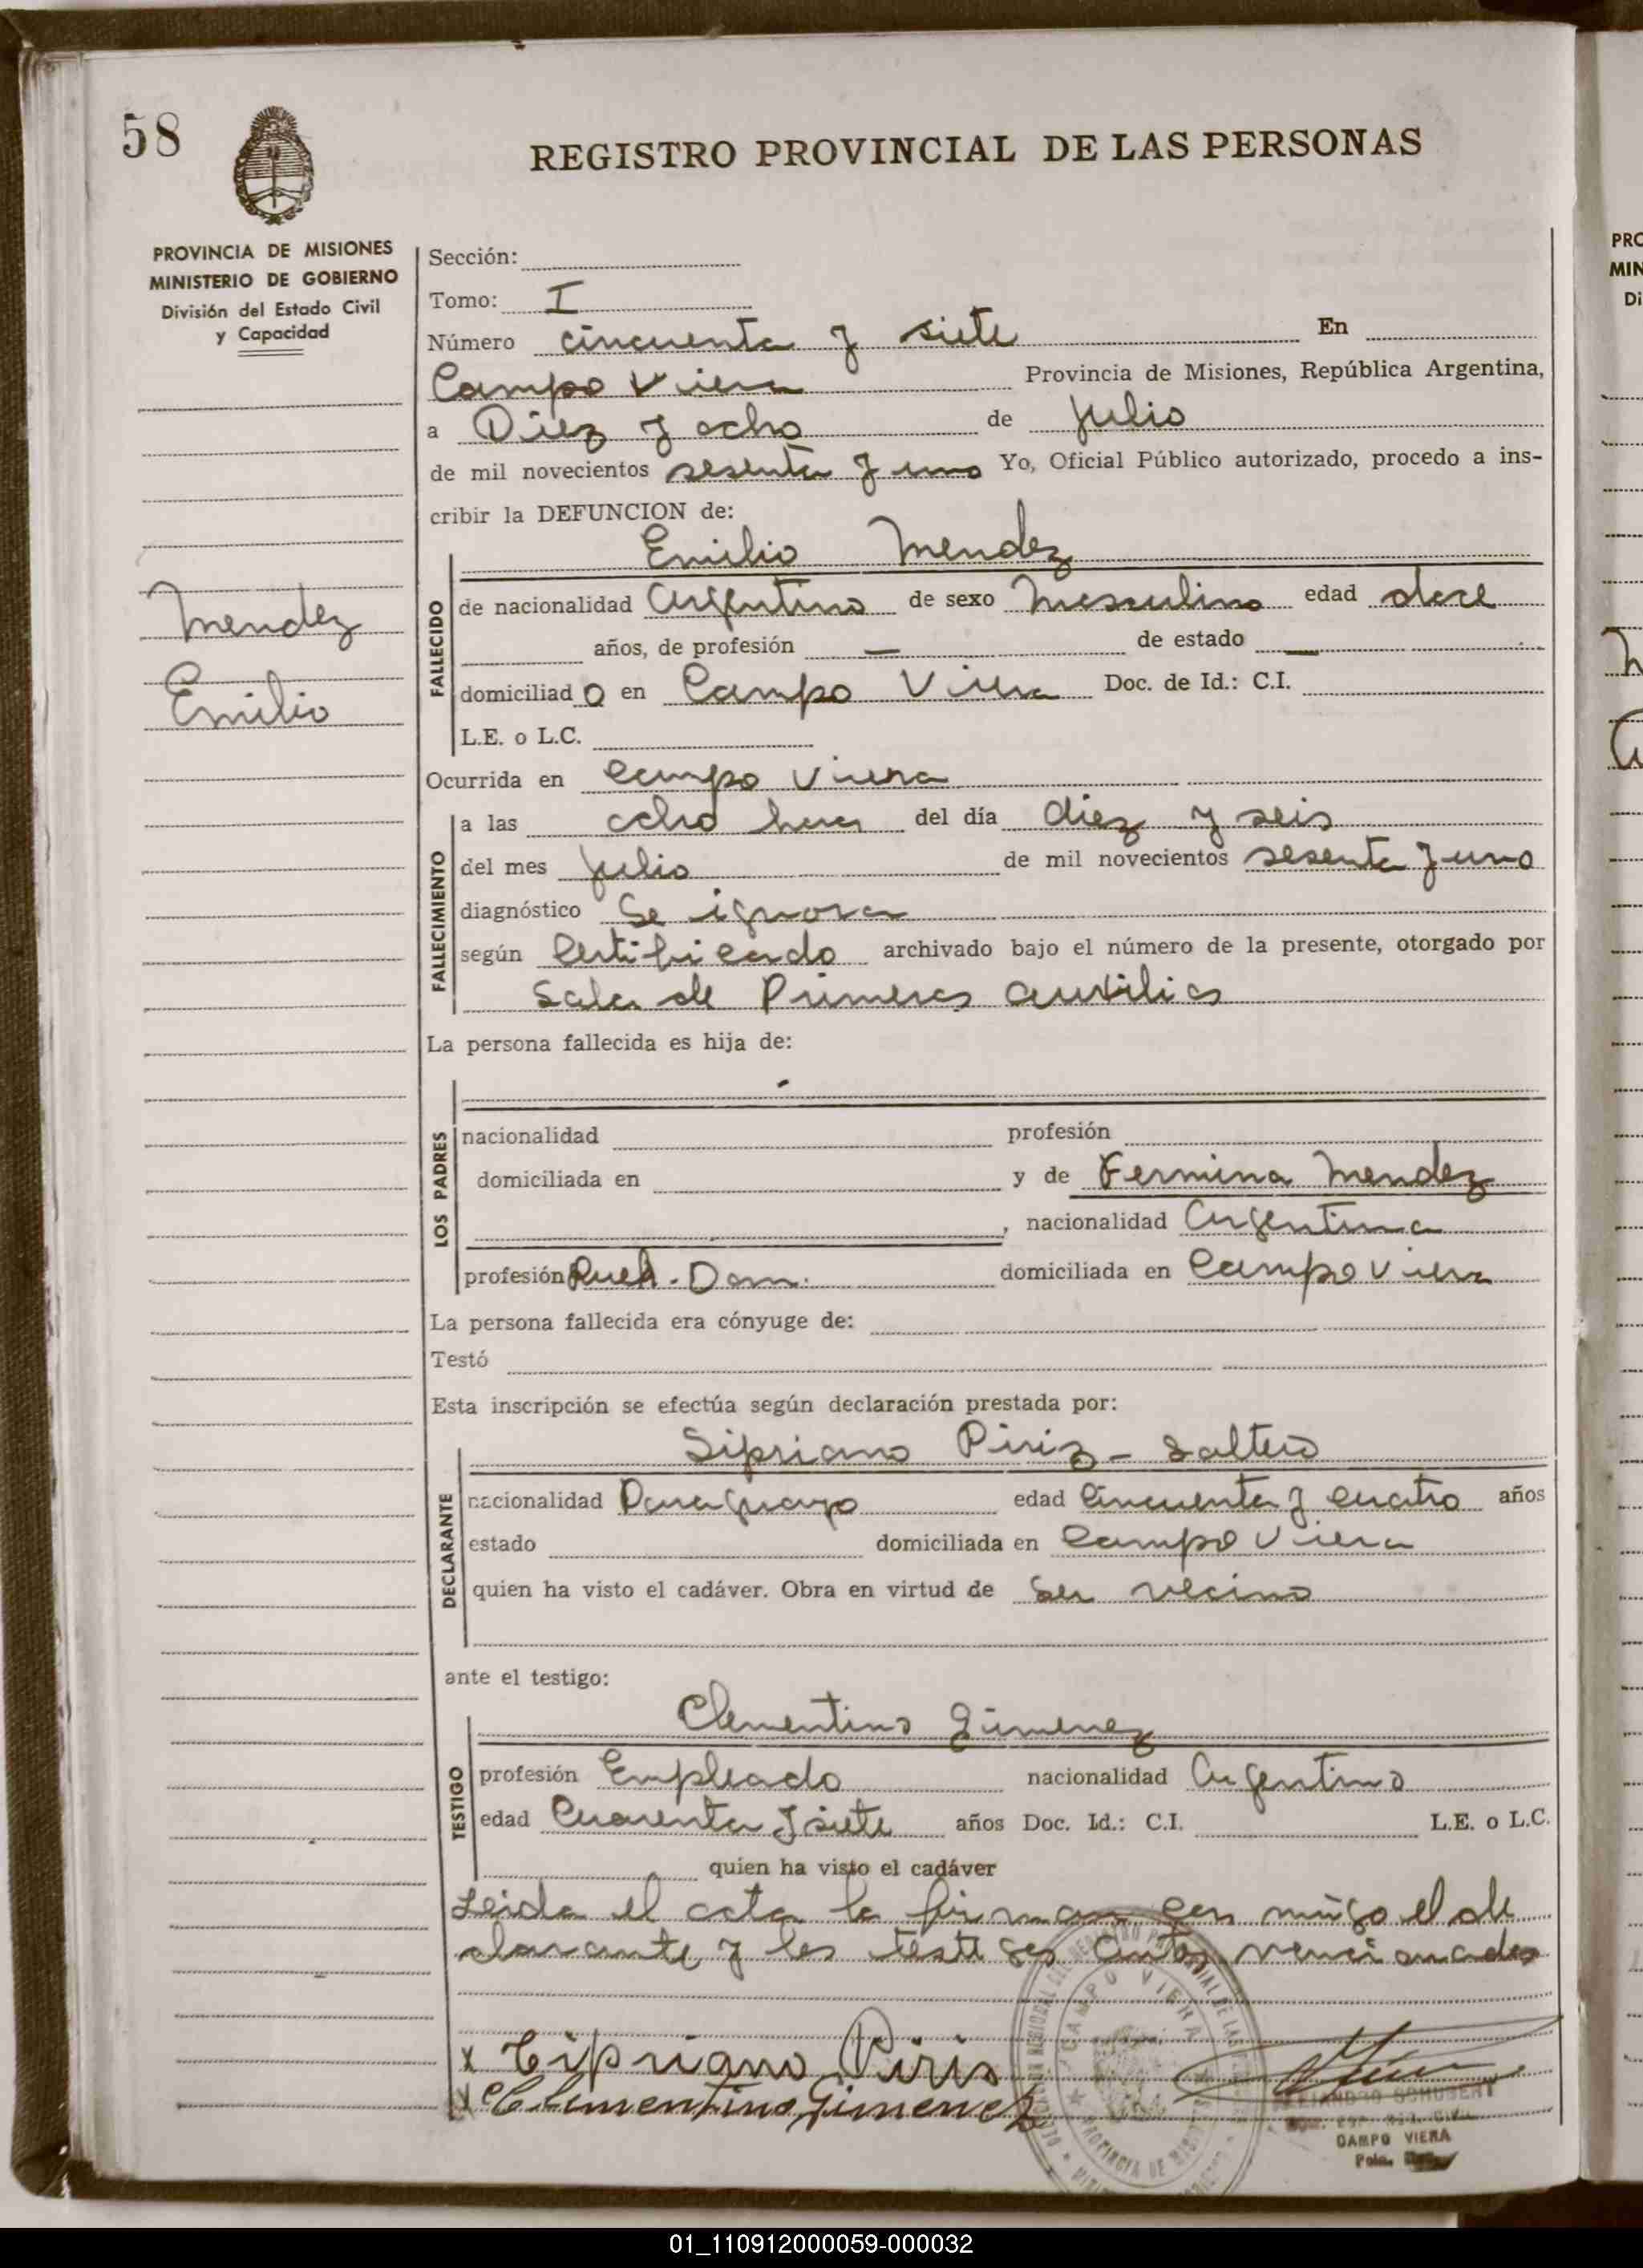 58
REGISTRO PROVINCIAL DE LAS PERSONAS
PROVINCIA DE MISIONES
MINISTERIO DE GOBIERNO
División del Estado Civil
y Capacidad
Mendez
Emilio
Sección:
Tomo: I
Número cincuenta y siete En
Campo Viera Provincia de Misiones, República Argentina,
a Diez y ocho de Julio
de mil novecientos sesenta y uno Yo, Oficial Público autorizado, procedo a ins-
cribir la DEFUNCION de:
Emilio Mendez
FALLECIDO
de nacionalidad Argentino de sexo Masculino edad doce
años, de profesión — de estado —
domiciliado en Campo Viera Doc. de Id.: C.I.
L.E. o L.C.
Ocurrida en Campo Viera
FALLECIMIENTO
a las ocho horas del día diez y seis
del mes Julio de mil novecientos sesenta y uno
diagnóstico Se ignora
según Certificado archivado bajo el número de la presente, otorgado por
Sala de Primeros auxilios
La persona fallecida es hija de:
LOS PADRES
nacionalidad profesión
domiciliada en y de Fermina Mendez
, nacionalidad Argentina
profesión Dom. domiciliada en Campo Viera
La persona fallecida era cónyuge de:
Testó
Esta inscripción se efectúa según declaración prestada por:
Sipriano Piriz - Soltero
DECLARANTE
nacionalidad Paraguayo edad Cincuenta y cuatro años
estado domiciliada en Campo Viera
quien ha visto el cadáver. Obra en virtud de Ser vecino
ante el testigo:
Clementino Gimenez
TESTIGO
profesión Empleado nacionalidad Argentino
edad Cuarenta y siete años Doc. Id.: C.I. L.E. o L.C.
quien ha visto el cadáver
Leida el acta la firman con migo el de
clarante y los testigos antes mencionados
x Cipriano Piris
x Clementino Gimenez
CAMPO VIERA
PROVINCIA DE
SCHUBERT
CAMPO VIERA
Pcia.
PRO
MIN
Di
01_110912000059-000032